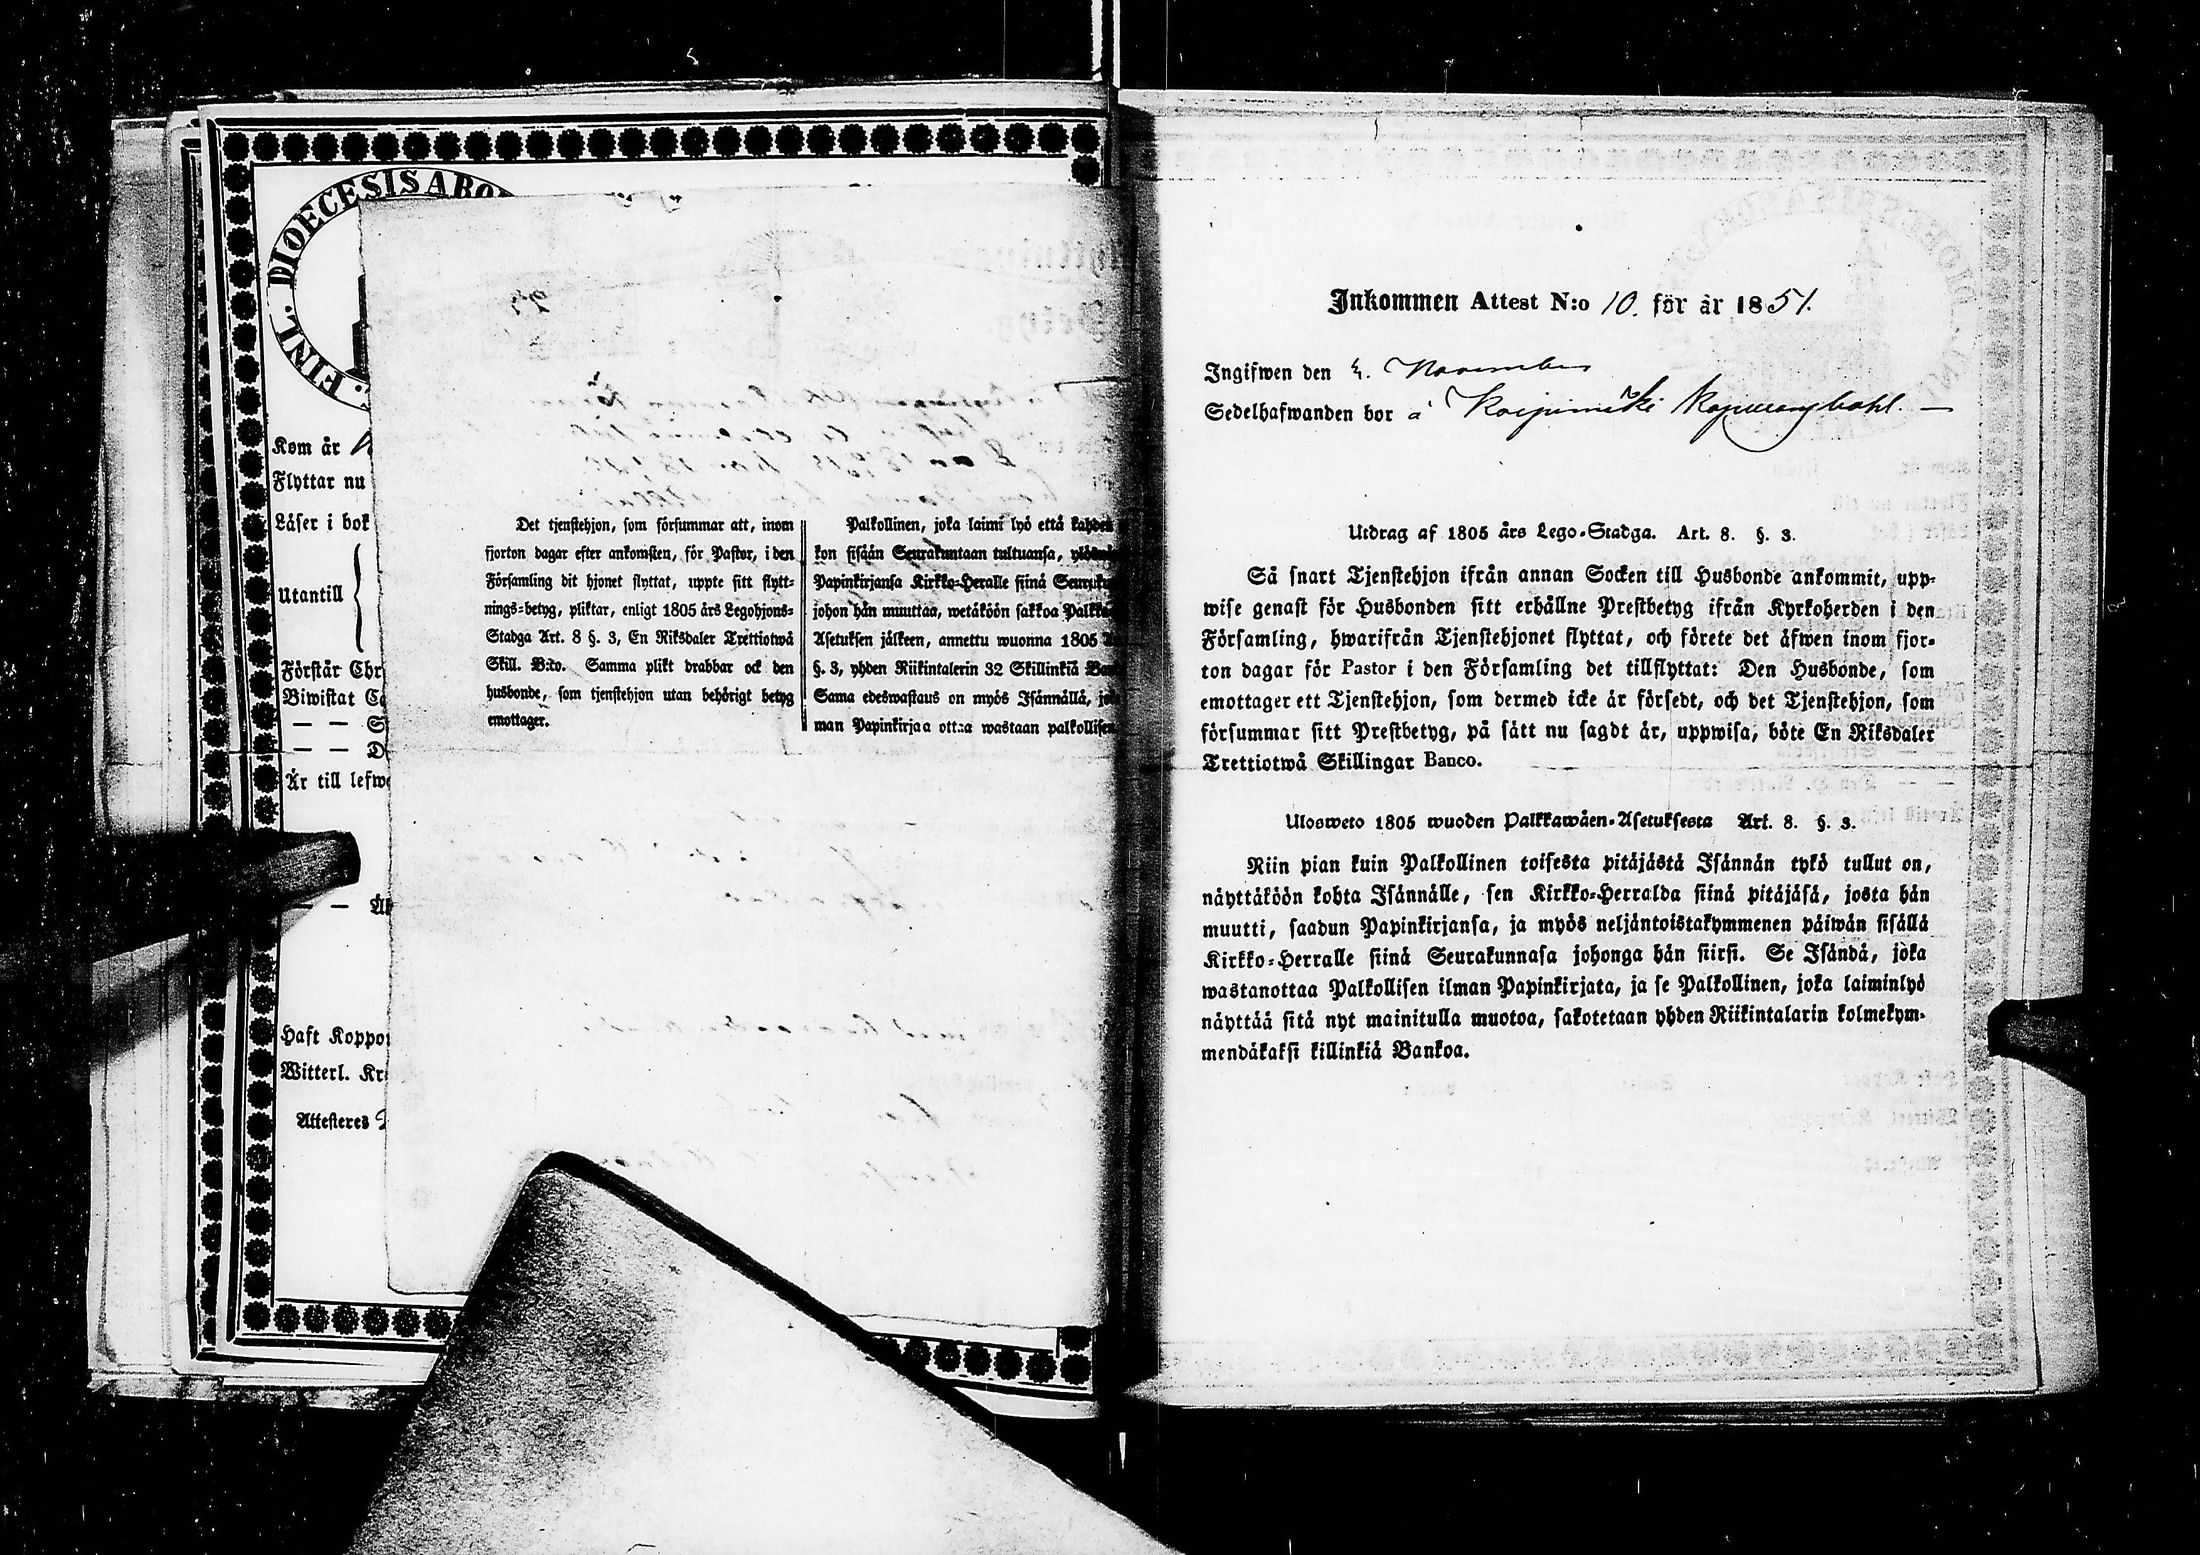 FINL. DIOECESIS ABO
Kom år
Flyttar nu
Läser i bok
Utantill
Förstår Chr
Biwistat
— —
— —
Är till lefwe
— —
Haft Koppor
Witterl.
Attesteres
Det tjenstehjon, som försummar att, inom
fjorton dagar efter ankomsten, för Pastor, i den
Församling dit hjonet flyttat, uppte sitt flytt-
nings-betyg, pliktar, enligt 1805 års Legohjons-
Stadga Art. 8 §. 3, En Riksdaler Trettiotwå
Skill. B:co. Samma plikt drabbar ock den
husbonde, som tjenstehjon utan behörigt betyg
emottager.
Palkollinen, joka laimi lyö että kahden
kon sisään Seurakuntaan tultuansa,
Papinkirjansa Kirkko-Heralle siinä Seuraku
johon hän muuttaa, wetäköön sakkoa Palkka
Asetuksen jälkeen, annettu wuonna 1805
§. 3, yhden Riikintalerin 32 Skillinkiä Ban
Sama edeswastaus on myös Isännällä,
man Papinkirjaa ottaa wastaan palkollisen
Inkommen Attest N:o 10. för år 1851.
Ingifwen den November
Sedelhafwanden bor å
Utdrag af 1805 års Lego-Stadga. Art. 8. §. 3.
Så snart Tjenstehjon ifrån annan Socken till Husbonde ankommit, upp-
wise genast för Husbonden sitt erhållne Prestbetyg ifrån Kyrkoherden i den
Församling, hwarifrån Tjenstehjonet flyttat, och förete det äfwen inom fjor-
ton dagar för Pastor i den Församling det tillflyttat: Den Husbonde, som
emottager ett Tjenstehjon, som dermed icke är försedt, och det Tjenstehjon, som
försummar sitt Prestbetyg, på sätt nu sagdt är, uppwisa, böte En Riksdaler
Trettiotwå Skillingar Banco.
Ulosweto 1805 wuoden Palkkawäen-Asetuksesta Art. 8. §. 3.
Niin pian kuin Palkollinen toisesta pitäjästä Isännän tykö tullut on,
näyttäköön kohta Isännälle, sen Kirkko-Herralda siinä pitäjäsä, josta hän
muutti, saadun Papinkirjansa, ja myös neljäntoistakymmenen päiwän sisällä
Kirkko-Herralle siinä Seurakunnasa johonga hän siirsi. Se Isändä, joka
wastanottaa Palkollisen ilman Papinkirjata, ja se Palkollinen, joka laiminlyö
näyttää sitä nyt mainitulla muotoa, sakotetaan yhden Riikintalarin kolmekym-
mendäkaksi killinkiä Bankoa.